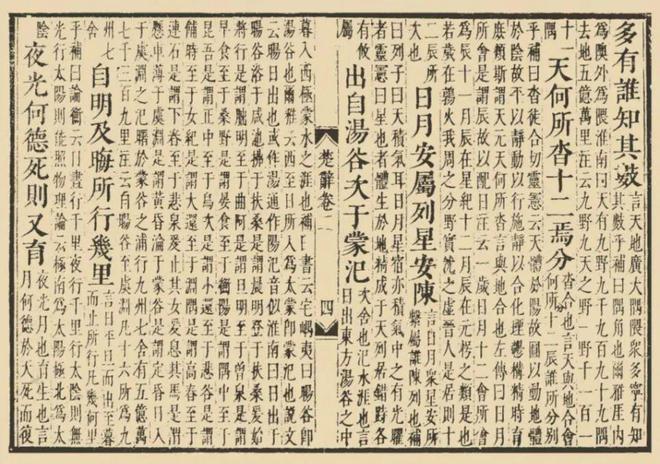 多有誰知其數
言天地廣大隅隈衆多寧有知
其數乎補曰隅角也爾雅厓內
為隩外為隈淮南曰天有九野九千九百九十九隅
去地五億萬里注云九野九天之野一野千一百一
十一隅
天何所沓十二焉分
沓合也言天與地合會
何所分十二辰誰所分別
乎補曰沓徒合切靈憲云天體於陽故圓以動地體
於陰故平以靜動以行施靜以合化堙鬱構精時育
庶類斯謂天元天何所沓言與地合也左傳曰日月
所會是謂辰故以配日注云一歲日月十二會所會
為辰十一月辰在星紀十二月辰在元枵之類是也
若歲在鶉火我周之分野實沈之虛晉人是居則十
二辰所次也
日月安屬列星安陳
言日月衆星安所
繫屬誰陳列也補
曰列子曰天積氣耳日月星宿亦積氣中之有光耀
者靈憲曰星也者體生於地精成于天列居錯跱各
有逌屬
出自湯谷次于蒙汜
次舍也汜水涯也言
日出東方湯谷之中
楚辭卷三
四
暮入西極蒙水之涯也補曰書云宅嵎夷曰暘谷即
湯谷也爾雅云西至日所入為太蒙即蒙汜也說文
云暘日出也或作湯通作陽汜音似淮南曰日出于
暘谷浴于咸池拂于扶桑是謂晨明登于扶桑爰始
將行是謂朏明至于曲阿是謂旦明至于曾泉是謂
早食至于桑野是謂晏食至于衡陽是謂隅中至于
昆吾是謂正中至于鳥次是謂小還至于悲谷是謂
餔時至于女紀是謂大還至于淵隅是謂高舂至于
連石是謂下舂至于悲泉爰止其女爰息其馬是謂
懸車薄于虞淵是謂黃昏淪于蒙谷是謂定昏日入
于虞淵之汜曙於蒙谷之浦行九州七舍有五億萬
七千三百九里注云自暘谷至虞淵凡十六所為九
州七舍
自明及晦所行幾里
言日平旦而出至暮
而止所行凡幾何里
乎補曰論衡云日晝行千里夜行千里行太陰則無
光行太陽則能照物理論云極南為太陽極北為太
陰
夜光何德死則又育
夜光月也育生也言
月何德於天死而復